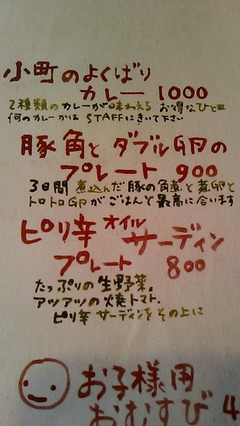 小町のよくばり
カレー 1000
2種類のカレーが味わえる お得なひと皿
何のカレーかは STAFFにきいて下さい
豚角と ダブル卵の
プレート 900
3日間 煮込んだ豚の角煮と 煮卵と
トロトロ卵が ごはんと最高に合います
ピリ辛 オイル サーディン
プレート 800
たっぷりの生野菜、
アツアツの焼トマト、
ピリ辛 サーディンをその上に
お子様用
おむすび 4